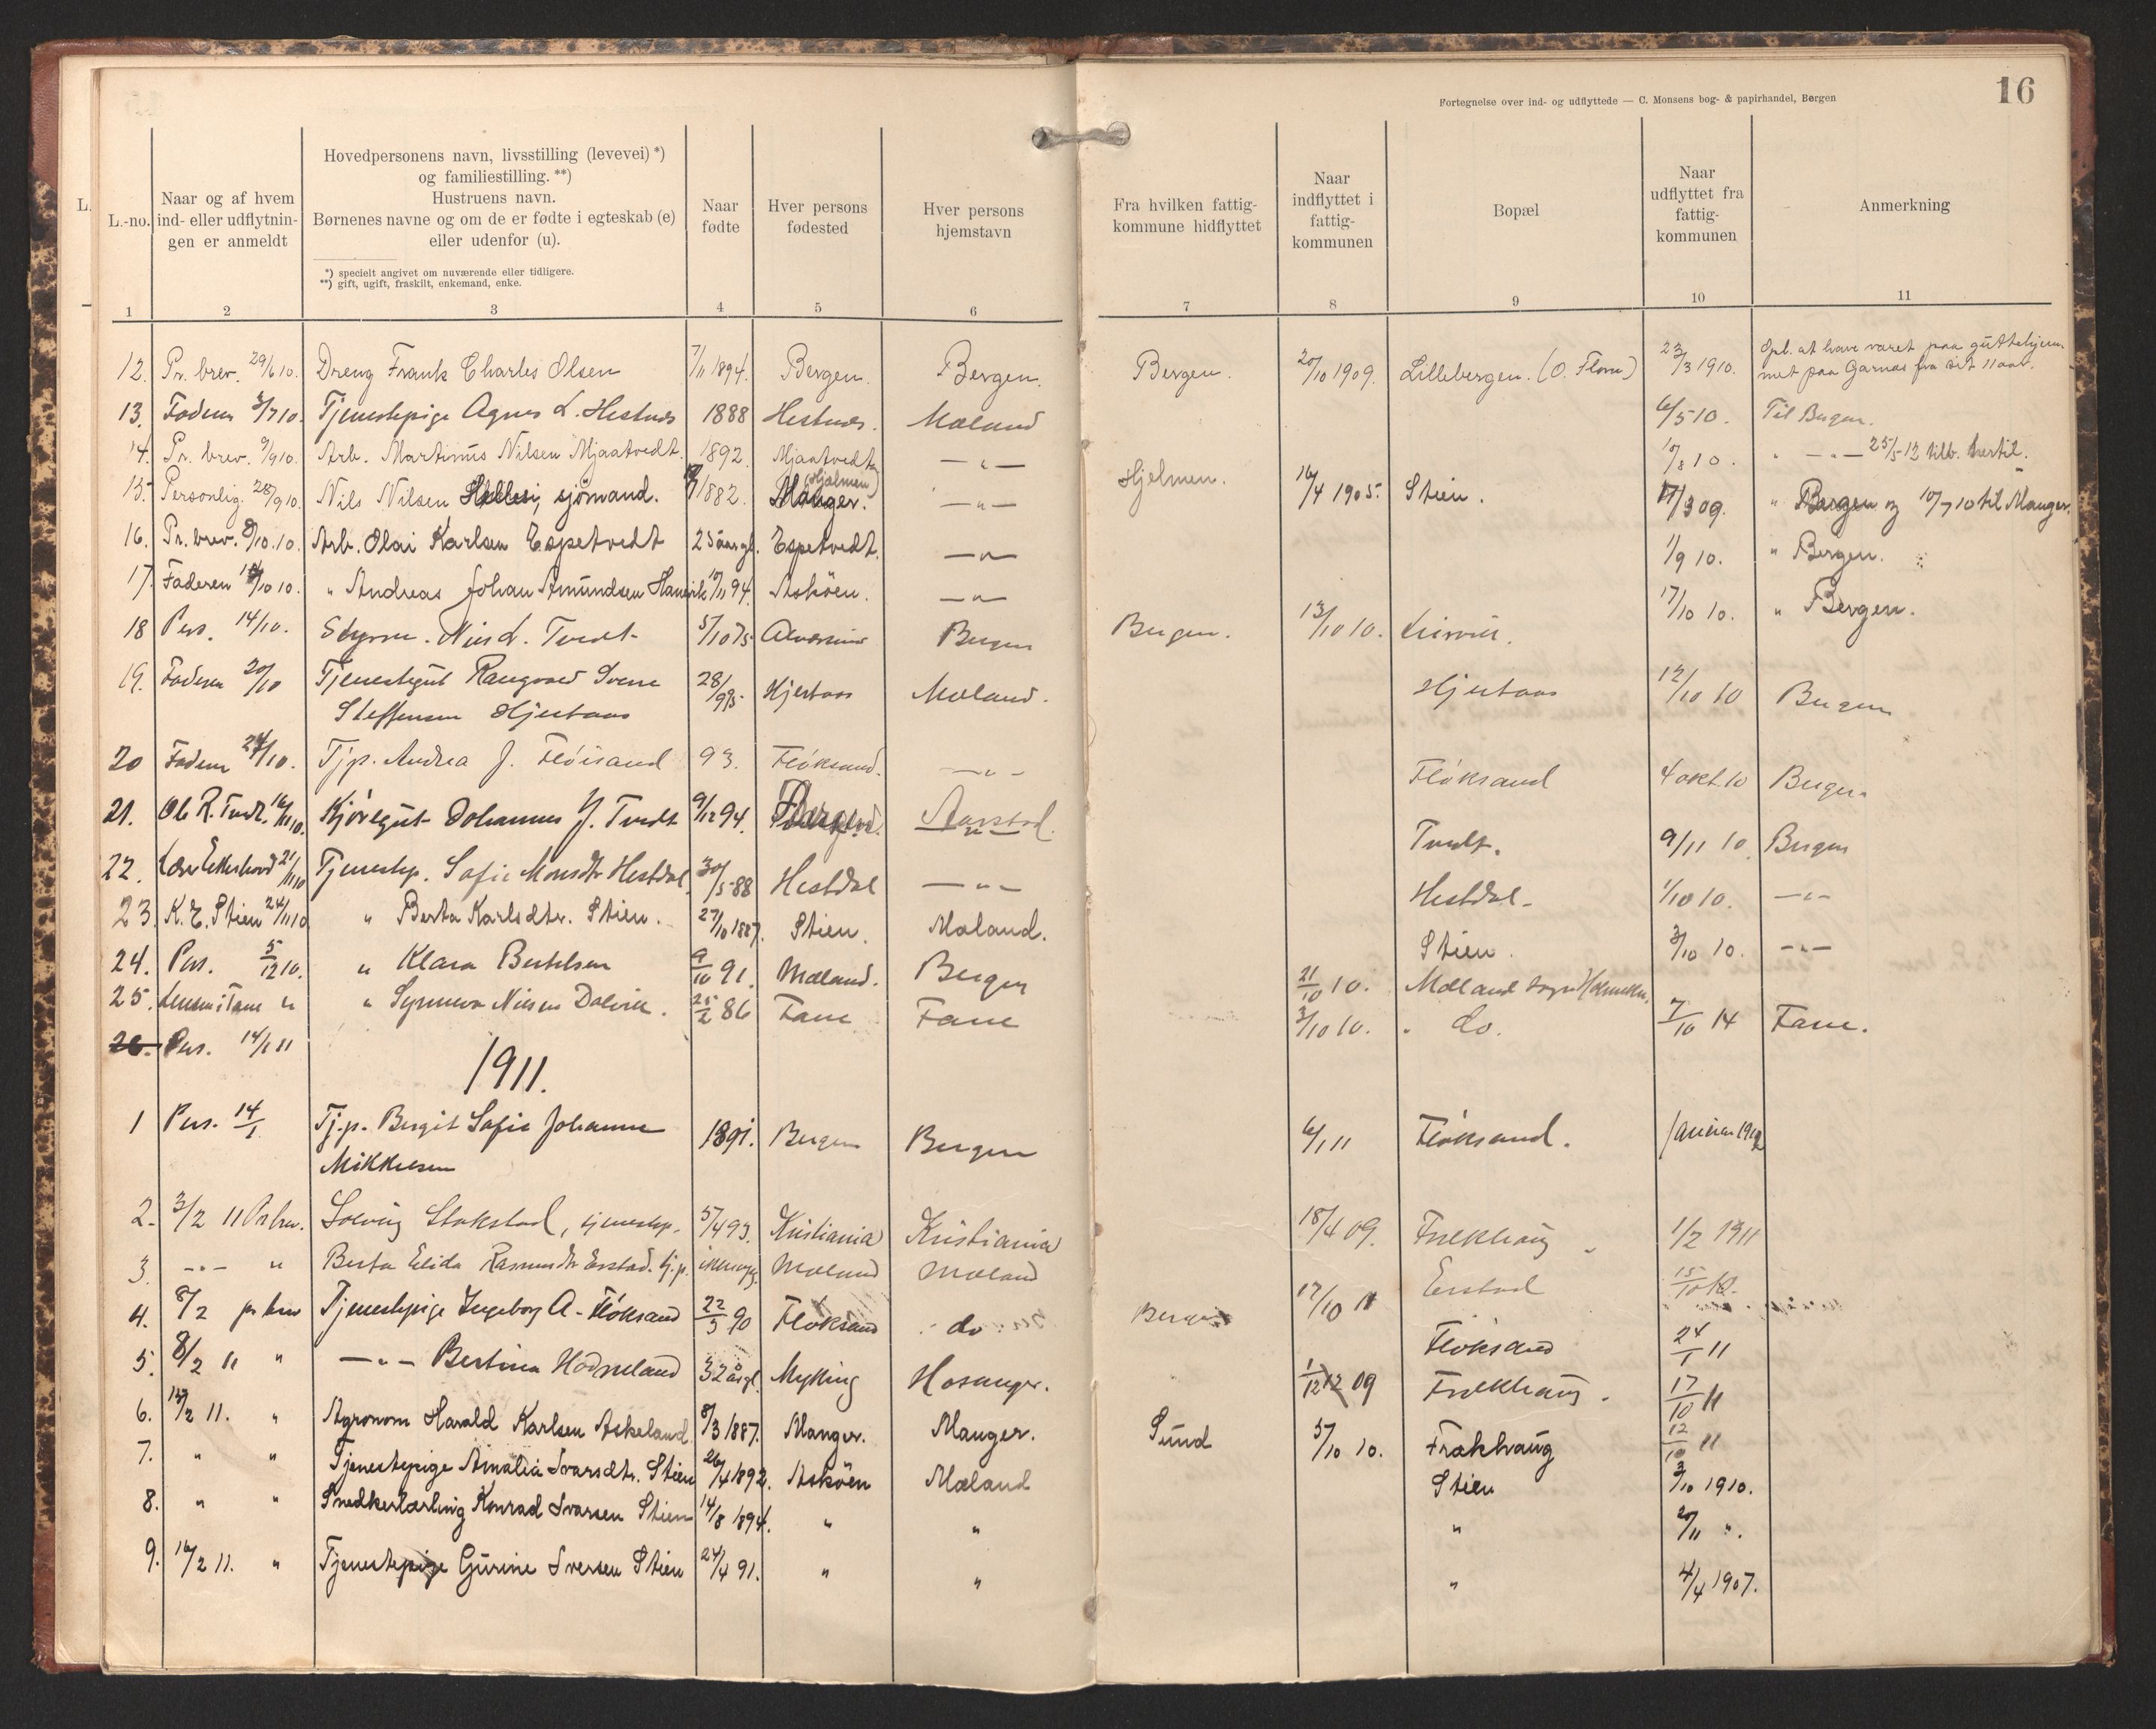 16
Fortegnelse over ind- og udflyttede — C. Monsens bog- & papirhandel, Bergen
L.-no.
Naar og af hvem
ind- eller udflytnin-
gen er anmeldt
Hovedpersonens navn, livsstilling (levevei) *)
og familiestilling. **)
Hustruens navn.
Børnenes navne og om de er fødte i egteskab (e)
eller udenfor (u).
*) specielt angivet om nuværende eller tidligere.
**) gift, ugift, fraskilt, enkemand, enke.
Naar
fødte
Hver persons
fødested
Hver persons
hjemstavn
Fra hvilken fattig-
kommune hidflyttet
Naar
indflyttet i
fattig-
kommunen
Bopæl
Naar
udflyttet fra
fattig-
kommunen
Anmerkning
1 2 3 4 5 6 7 8 9 10 11
12. Pr. brev. 29/6 10. Dreng Frank Charles Olsen 7/11 1894. Bergen. Bergen. Bergen. 20/10 1909. Lillebergen. (O. Florv) 23/3 1910. Opl. at have været paa guttehjem-
met paa Garnæs fra sit 11 aar.
13. Faderen 3/7 10. Tjenestepige Agnes L. Hestnes 1888 Hestnes. Mæland 6/5 10. Til Bergen.
14. Pr. brev. 9/9 10. Arb. Martinus Nilsen Mjaatvedt. 1892. Mjaatvedt —"— 10/8 10. " —"— 25/5 12 tilb. hertil.
15. Personlig. 28/9 10. Nils Nilsen sjömand. 1882. Manger. (Hjelmen) —"— Hjelmen. 16/4 1905. Stien. 09. " Bergen og 10/7 10 til Manger.
16. Pr. brev. 8/10 10. Arb. Olai Karlsen Espetvedt 25 aar gl. Espetvedt. —"— 1/9 10. " Bergen.
17. Faderen 10 10. " Andreas Johan Amundsen Hanevik 10/11 94. Asköen. —"— 17/10 10. " Bergen.
18 Pers. 14/10. Styrm. Nils L. Tvedt 5/10 75. Bergen Bergen. 13/10 10.
19. Faderen 20/10 Tjenestegut Rangvald Sverre 28/ 95. Hjertaas Mæland. Hjertaas 12/10 10 Bergen
Steffensen Hjertaas
20 Faderen 24/10. Tjp. Andrea J. Flöksand 93. Flöksand. —"— Flöksand 4 okt. 10 Bergen
21. Ole R. Tvedt. 16/11 10. Kjöregut Johannes J. Tvedt 9/12 94. Aarstad. Tvedt. 9/11 10. Bergen
22. 21/11 10 Tjenestep. Sofie Monsdtr Hestdal. 30/5 88 Hestdal —"— Hestdal. 1/10 10. —"—
23. K. E. Stien 24/11 10 " Berta Karlsdtr. Stien. 27/10 1887. Stien. Mæland. Stien. 3/10 10. —"—
24. Pers. 5/12 10. " Klara Bertelsen 9/10 91. Mæland. Bergen 21/10 10. Mælland
25. " " Synneva Nilsen Dalvik. 25/2 86 Fane Fane 3/10 10. " do. 7/10 14 Fane.
26. Pers. 14/1 11
1911.
1 Pers. 14/1 Tj.p. Bergit Sofie Johanne 1891. Bergen Bergen 6/1 11 Flöksand. Januar 1912
Mikkelsen
2. 3/2 11 Pr brev. Solveig Stokstad, tjenestep. 5/4 93. Kristiania Kristiania 18/4 09. Frekhaug 1/2 1911
3. —"— " Berta Elida Rasmusdtr Erstad. tj.p. Mæland Mæland 17/10 11 Erstad 15/10
4. 8/2 pr brev Tjenestepige Ingeborg A. Flöksand 22/5 90 Flöksand do Bergen Flöksand 24/1 11
5. 8/2 11 " —"— Bertina Hodneland 32 år gl. Myking Hosanger. 1/12 09 Frekhaug. 17/10 11
6. 13/2 11. " Agronom Harald Karlsen Askeland 8/3 1887. Manger. Manger. Sund 5/10 10. Frækhaug 12/10 11
7. " " Tjenestepige Amalia Ivarsdtr. Stien 26/4 1892. Asköen Mæland Stien 3/10 1910.
8. " " Snedkerlærling Konrad Ivarsen Stien 14/8 1894. " " " 20/11 ".
9. 16/2 11. " Tjenestepige Gurine Iversen Stien 24/4 91. " " " 4/4 1907.